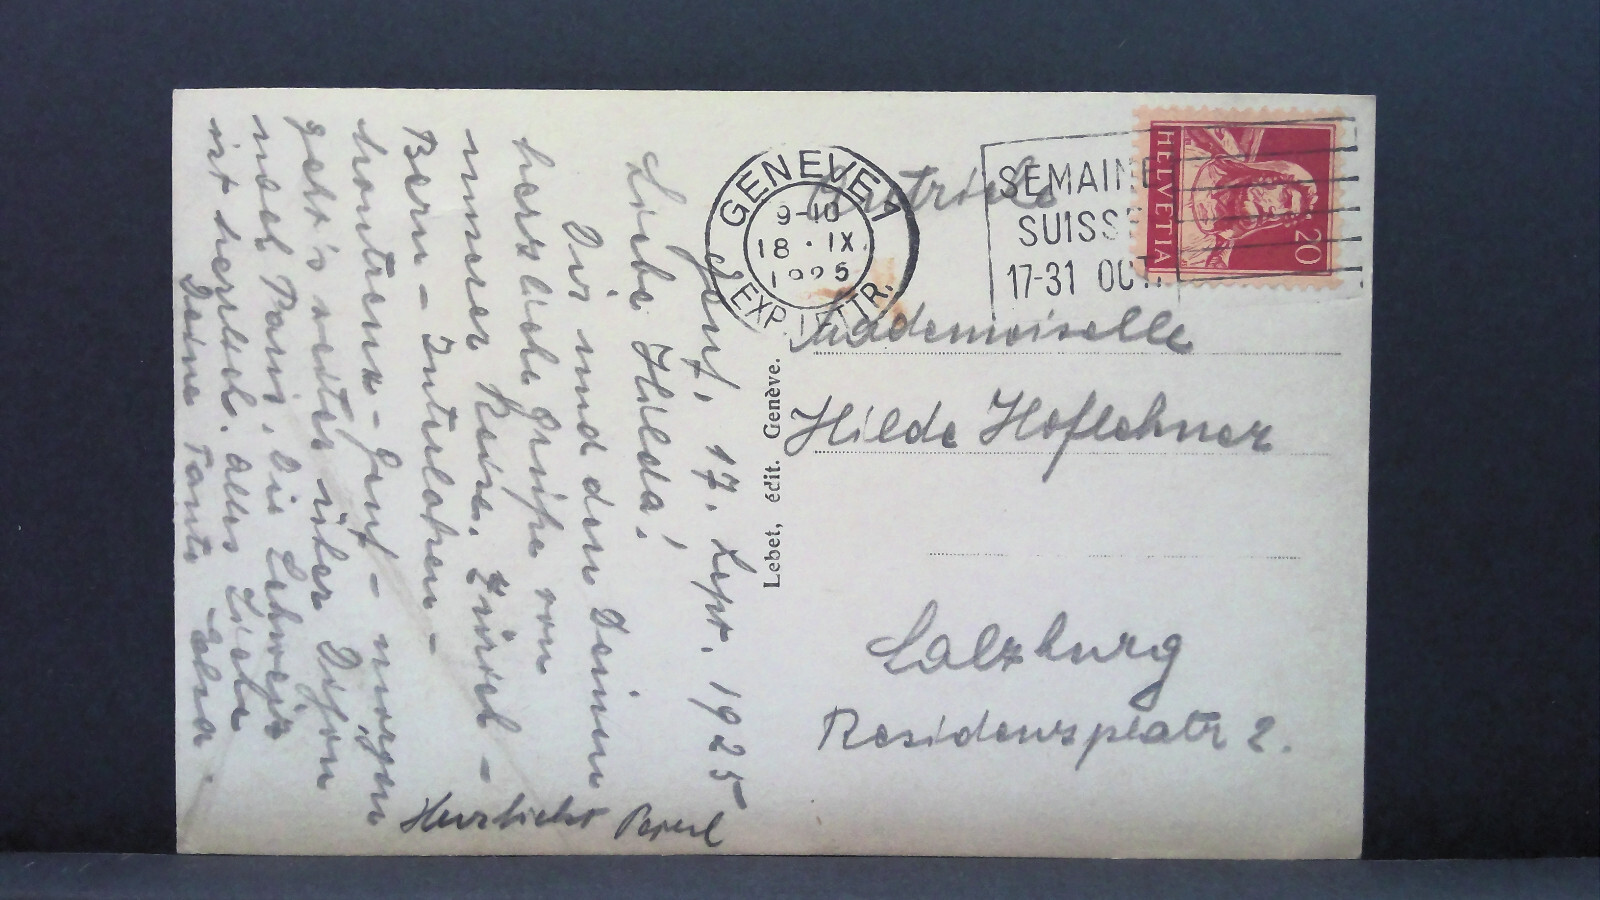 Genf, 17. Sept. 1925
Liebe Hilda!
Dir und den Deinen
herzliche Grüße von
unserer Reise. Zürich -
Bern - Interlaken -
Montreux - Genf - morgen
geht's weiter über Dijon
nach Paris. Die Schweiz
ist herrlich. Alles Liebe
Deine Tante
Herzlichst
GENEVE 1
9-10
18 · IX.
1925
EXP. LETTR.
SEMAINE
SUISSE
17-31 OCT.
HELVETIA
20
Lebet, édit. Genève.
Autriche
Mademoiselle
Hilde Hoflehner
Salzburg
Residenzplatz 2.